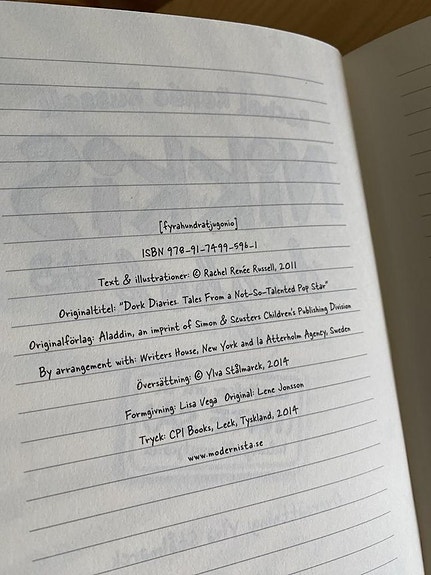 [fyrahundratjugonio]
ISBN 978-91-7499-596-1
Text & illustrationer: © Rachel Renée Russell, 2011
Originaltitel: "Dork Diaries. Tales From a Not-So-Talented Pop Star"
Originalförlag: Aladdin, an imprint of Simon & Scusters Children's Publishing Division
By arrangement with: Writers House, New York and Ia Atterholm Agency, Sweden
Översättning: © Ylva Stålmarck, 2014
Formgivning: Lisa Vega Original: Lene Jonsson
Tryck: CPI Books, Leck, Tyskland, 2014
www.modernista.se